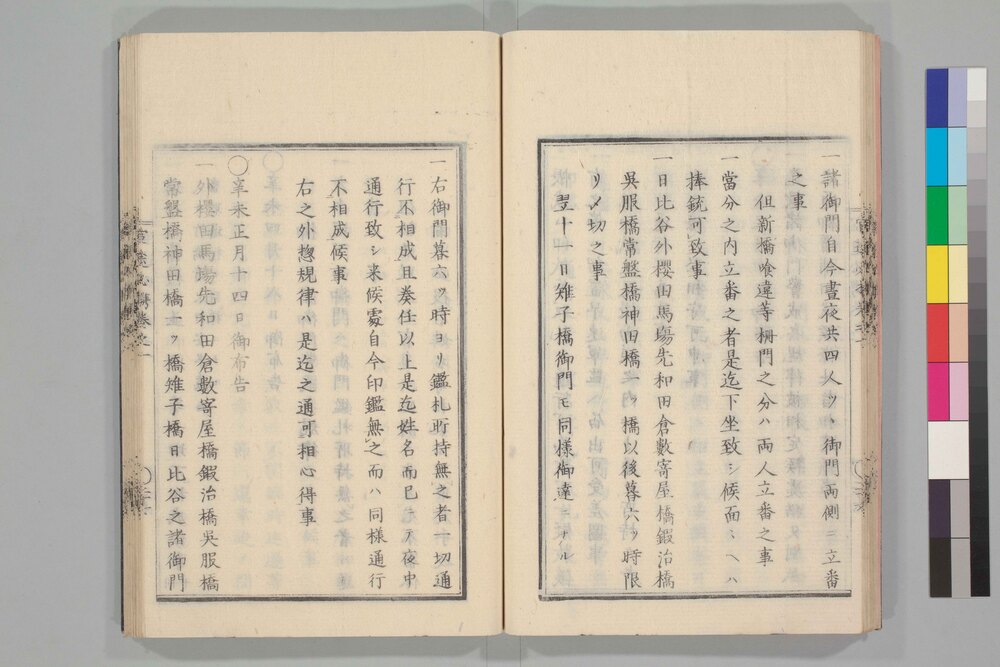 一諸御門自今晝夜共四人ツヽ御門両側ニ立番
之事
但新橋喰違等柵門之分ハ両人立番之事
一當分之内立番之者是迄下坐致シ候面ミヘハ
捧銃可致事
一日比谷外櫻田馬塲先和田倉數寄屋橋鍜治橋
呉服橋常盤橋神田橋一ツ橋以後暮六ツ時限
リ〆切之事
翌十一日雉子橋御門モ同様御達ニナル
一右御門暮六ツ時ヨリ鑑札所持無之者一切通
行不相成且奏任以上是迄姓名而已ニテ夜中
通行致シ来候處自今印鑑無之而ハ同様通行
不相成候事
右之外惣規律ハ是迄之通可相心得事
〇辛未正月十四日御布告
一外櫻田馬塲先和田倉數寄屋橋鍜治橋呉服橋
常盤橋神田橋一ツ橋雉子橋日比谷之諸御門